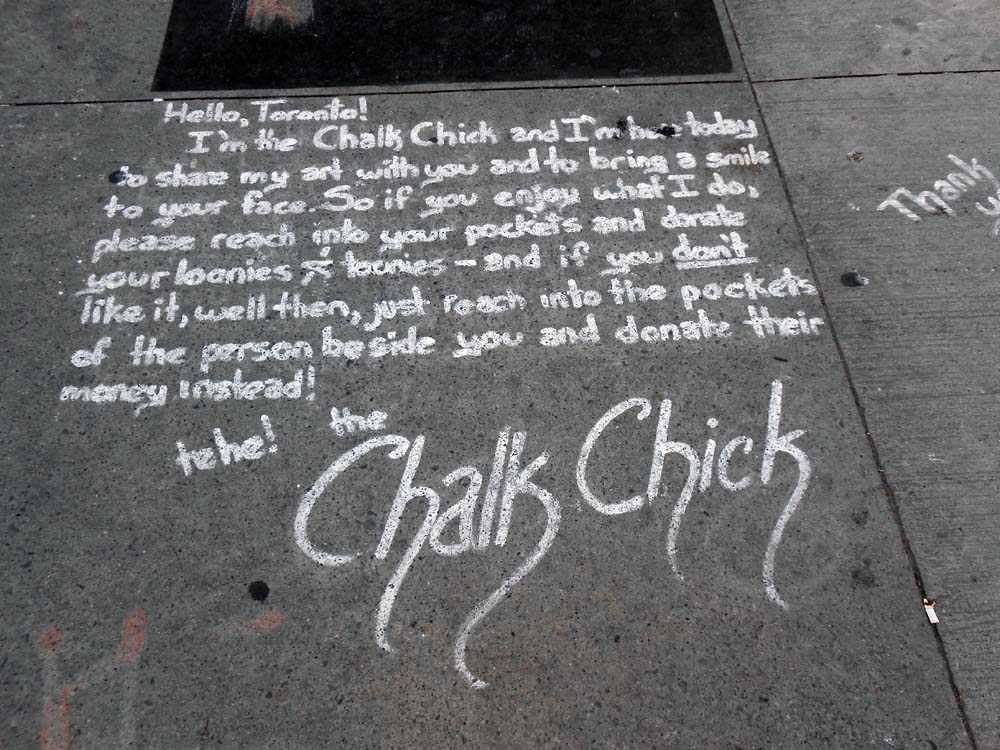 Hello, Toronto!
I'm the Chalk Chick and I'm here today
to share my art with you and to bring a smile
to your face. So if you enjoy what I do,
please reach into your pockets and donate
your loonies & toonies - and if you don't
like it, well then, just reach into the pockets
of the person beside you and donate their
money instead!
tehe! the
Chalk Chick
Thank